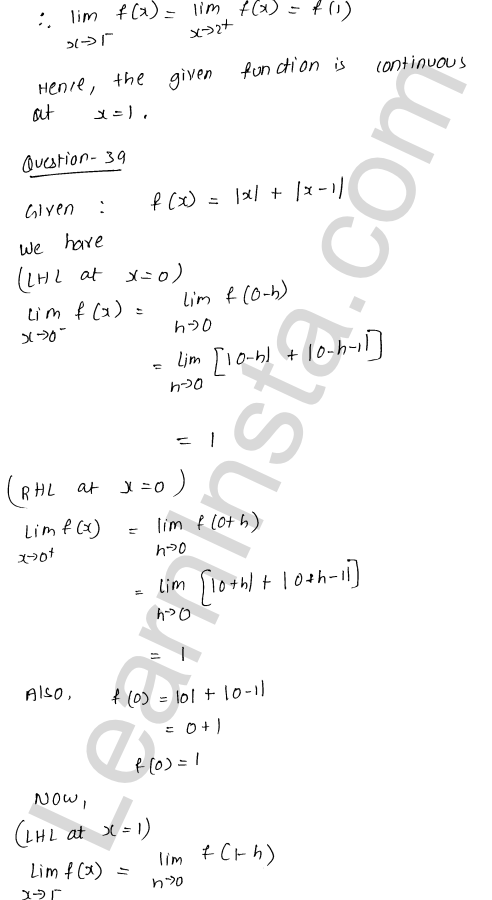 ∴ lim f(x) = lim f(x) = f(1)
x→1⁻ x→2⁺
Hence, the given function is continuous
at x=1.
Question-39
Given : f(x) = |x| + |x-1|
We have
(LHL at x=0)
lim f(x) = lim f(0-h)
x→0⁻ h→0
= lim [|0-h| + |0-h-1|]
h→0
= 1
(RHL at x=0)
Lim f(x) = lim f(0+h)
x→0⁺ h→0
= lim [|0+h| + |0+h-1|]
h→0
= 1
Also, f(0) = |0| + |0-1|
= 0+1
f(0) = 1
Now,
(LHL at x=1)
Lim f(x) = lim f(1-h)
x→1⁻ h→0
LearnInsta.com